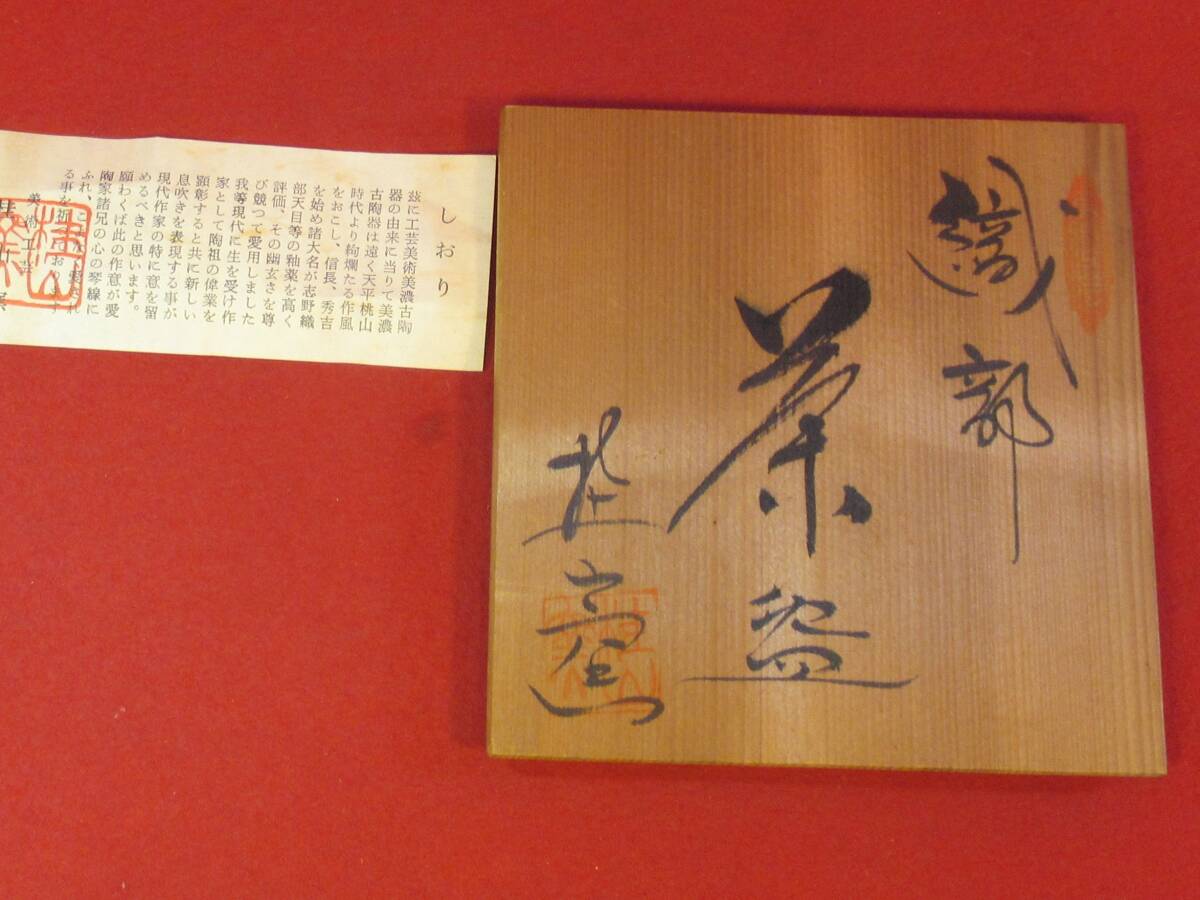 織部
茶盌
しおり
玆に工芸美術美濃古陶
器の由来に当りて美濃
古陶器は遠く天平桃山
時代より絢爛たる作風
をおこし、信長、秀吉
を始め諸大名が志野織
部天目等の釉薬を高く
評価、その幽玄さを尊
び競つて愛用しました
我等現代に生を受け作
家として陶祖の偉業を
顕彰すると共に新しい
息吹きを表現する事が
現代作家の特に意を留
めるべきと思います。
願わくば此の作意が愛
陶家諸兄の心の琴線に
ふれ、
る事を祈
美術工芸